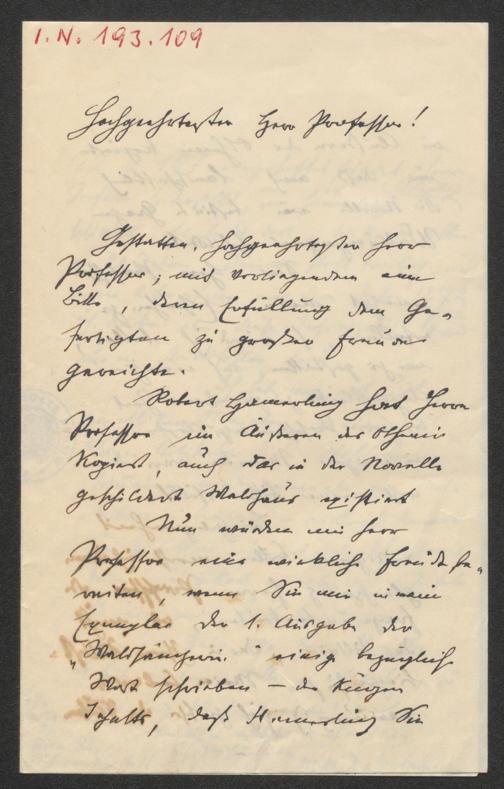 I.N. 193.109
Hochgeehrtester Herr Professor!
Gestatten, hochgeehrtester Herr
Professor, mir vorliegendem eine
Bitte, deren Erfüllung dem Ge-
fertigten zu großer Freude
gereichte.
Robert Hamerling hat Herrn
Professor im Äußeren des
kopiert, auch das in der Novelle
geschildert Waldhaus existiert
Nun würden mir Herr
Professor eine wirkliche Freude be-
reiten, wenn Sie mir in mein
Exemplar der 1. Ausgabe der
"Waldsängerin" einige bezüglich
Wort schrieben – des kurzen
Inhalts, daß Hamerling Sie